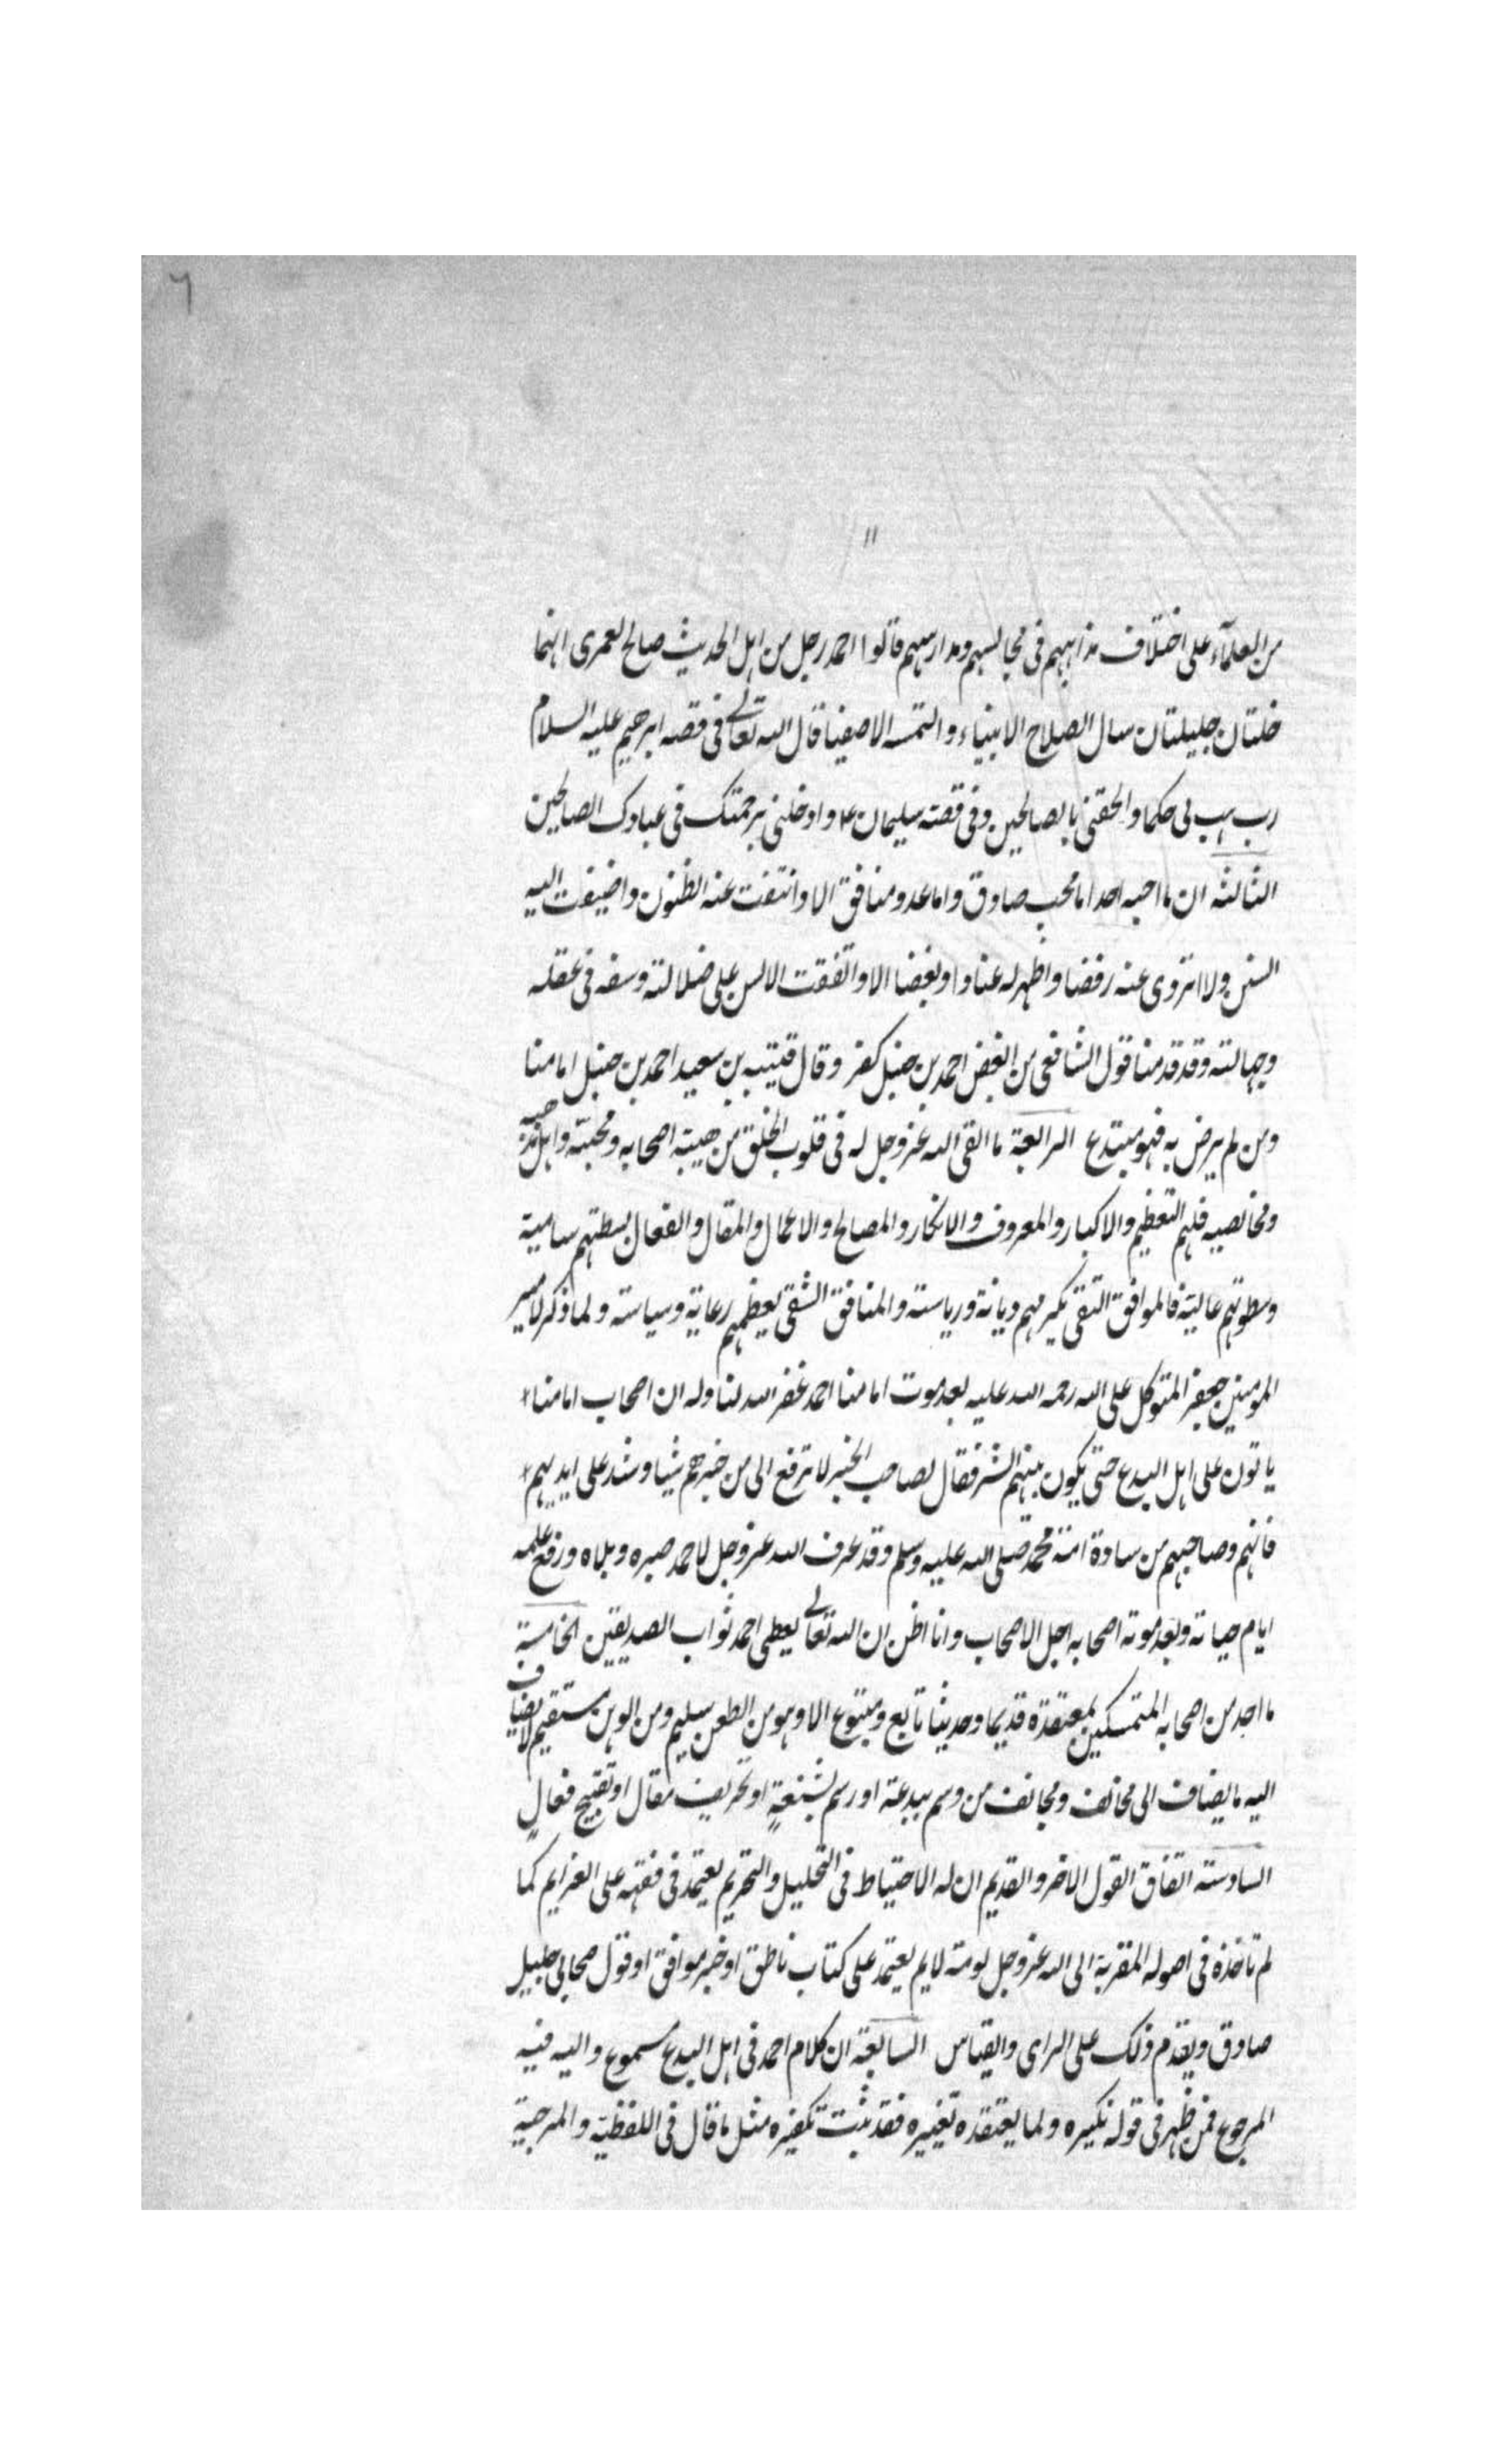 ٦
١١
من العلماء على اختلاف مذاهبهم فى مجالسهم ومدارسهم قالوا احمد رجل من اهل الحديث صالح لعمرى انهما
خلتان جليلتان سال الصلاح الانبياء والتمسه الاصفيا قال الله تعالى فى قصه ابرهيم عليه السلام
رب هب لى حكما والحقنى بالصالحين وفى قصته سليمان ع وادخلنى برحمتك فى عبادك الصالحين
الثالثه ان ما احبه احد اما محب صادق واما عدو منافق الا وانتفت عنه الظنون واضيفت اليه
السنن ولا انزوى عنه رفضا واظهر له عنادا وبغضا الا واتفقت الالسن على ضلالته وسفه فى عقله
وجهالته وقد قدمنا قول الشافعى من ابغض احمد بن حنبل كفر وقال قتيبه بن سعيد احمد بن حنبل امامنا
ومن لم يرض به فهو مبتدع الرابعة ما القى الله عز وجل له فى قلوب الخلق من هيبة اصحابه ومحبته واهل مذهبه
ومخالصيه فلهم التعظيم والاكبار والمعروف والانكار والمصالح والاعمال والمقال والفعال بسطتهم سامية
وسطوتهم عالية فالموافق التقى يكرمهم ديانة ورياسته والمنافق الشقى يعظمهم رعاية وسياسته ولما ذكر لامير
المومنين جعفر المتوكل على الله رحمه الله عليه بعد موت امامنا احمد غفر الله لنا وله ان اصحاب امامنا
ياتون على اهل البدع حتى يكون بينهم الشر فقال لصاحب الخبر لا ترفع الى من خبرهم شيا وشد على ايديهم
فانهم وصاحبهم من سادة امة محمد صلى الله عليه وسلم وقد عرف الله عز وجل لاحمد صبره وبلاه ورفع علمه
ايام حياته وبعد موته اصحابه اجل الاصحاب وانا اظن ان الله تعالى يعطى احمد ثواب الصديقين الخامسة
ما احد من اصحابه المتمسكين بمعتقده قديما وحديثا تابع ومتبوع الا وهو من الطعن سليم ومن الوهن مستقيم لا يضاف
اليه ما يضاف الى مخالف ومجانف من وسم ببدعة او رسم بشنعة او تحريف مقال او تقبيح فعال
السادسته اتفاق القول الاخر والقديم ان له الاحتياط فى التحليل والتحريم يعتمد فى فقهه على العزايم كما
لم تاخذه فى اصوله المقربة الى الله عز وجل لومة لايم يعتمد على كتاب ناطق او خبر موافق او قول صحابى جليل
صادق ويقدم ذلك على الراى والقياس السابعة ان كلام احمد فى اهل البدع مسموع واليه فيه
المرجوع فمن ظهر فى قوله نكيره ولما يعتقده تغييره فقد ثبت تكفيره مثل ما قال فى اللفظية والمرجية